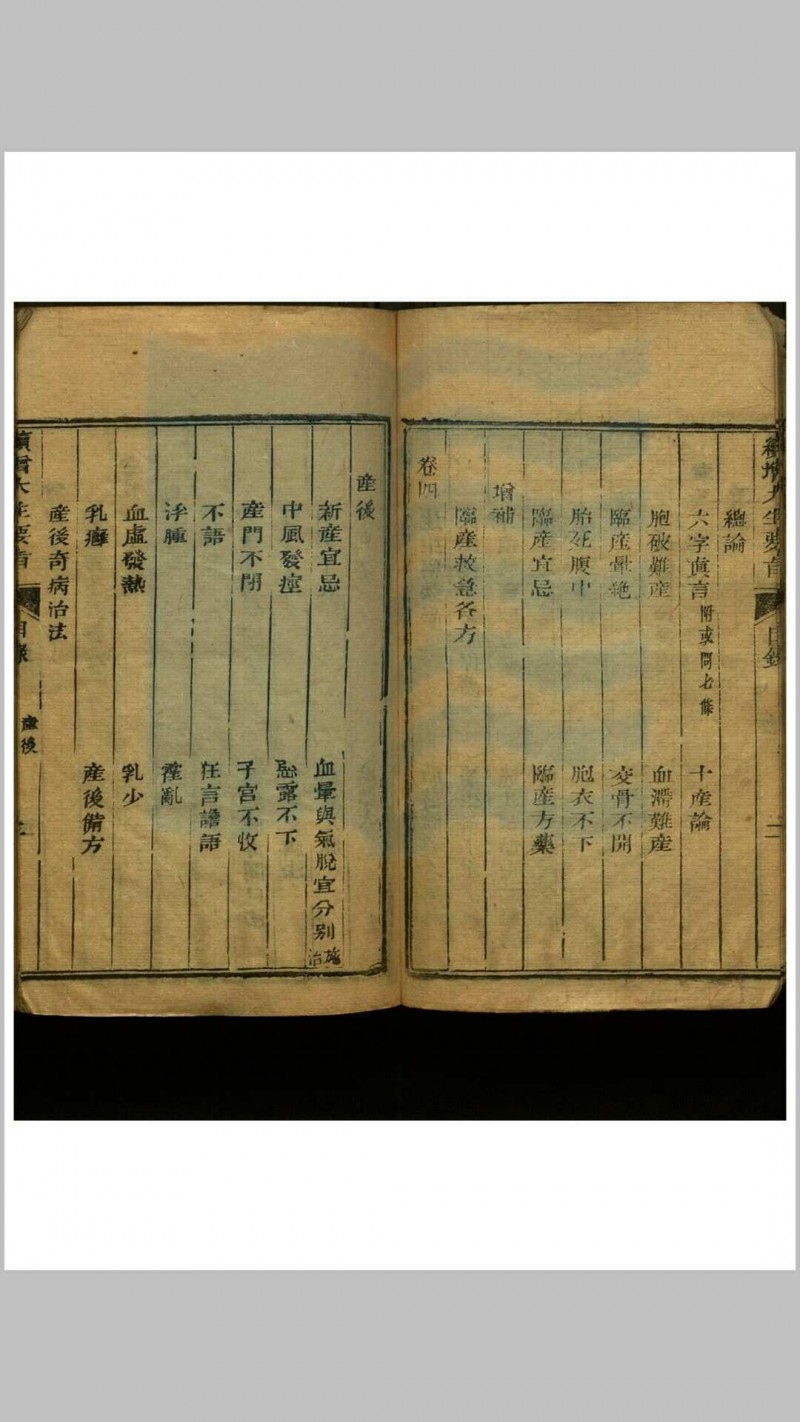 續增大生要旨 目錄 二
總論
六字真言 附或問七條 十産論
胞破難産 血滯難産
臨産暈絶 交骨不開
胎死腹中 胞衣不下
臨産宜忌 臨産方藥
增補
臨産救急各方
卷四
産後
新産宜忌 血暈與氣脫宜分别施治
中風發痙 惡露不下
産門不閉 子宮不收
不語 狂言譫語
浮腫 霍亂
血虛發熱 乳少
乳癰 産後備方
産後奇病治法
續增大生要旨 目錄 産後